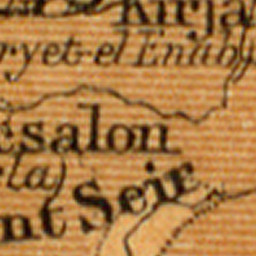 Kirja
ryet-el Enab)
esalon
ela)
nt Seir